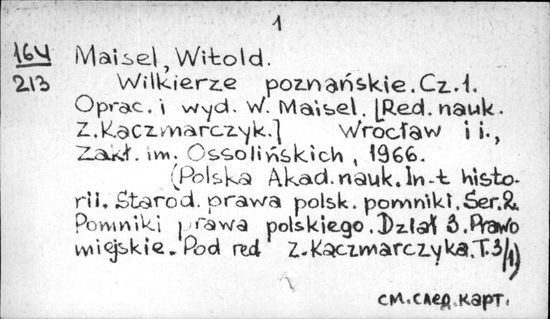 1
16У Maisel, Witold.
213 Wilkierze poznańskie. Cz.1.
Oprac. i wyd. W. Maisel. [Red. nauk.
Z. Kaczmarczyk.] Wrocław i i.,
Zakł. im. Ossolińskich, 1966.
(Polska Akad. nauk. In-t histo-
rii. Starod. prawa polsk. pomniki. Ser. 2.
Pomniki prawa polskiego. Dział 3. Prawo
miejskie. Pod red Z. Kaczmarczyka. T. 3/1)
см. след. карт.